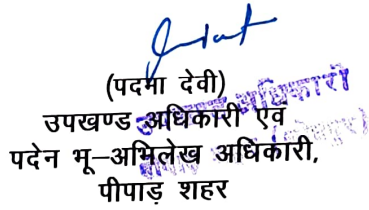 (पदमा देवी)
उपखण्ड अधिकारी एवं
पदेन भू–अभिलेख अधिकारी,
पीपाड़ शहर